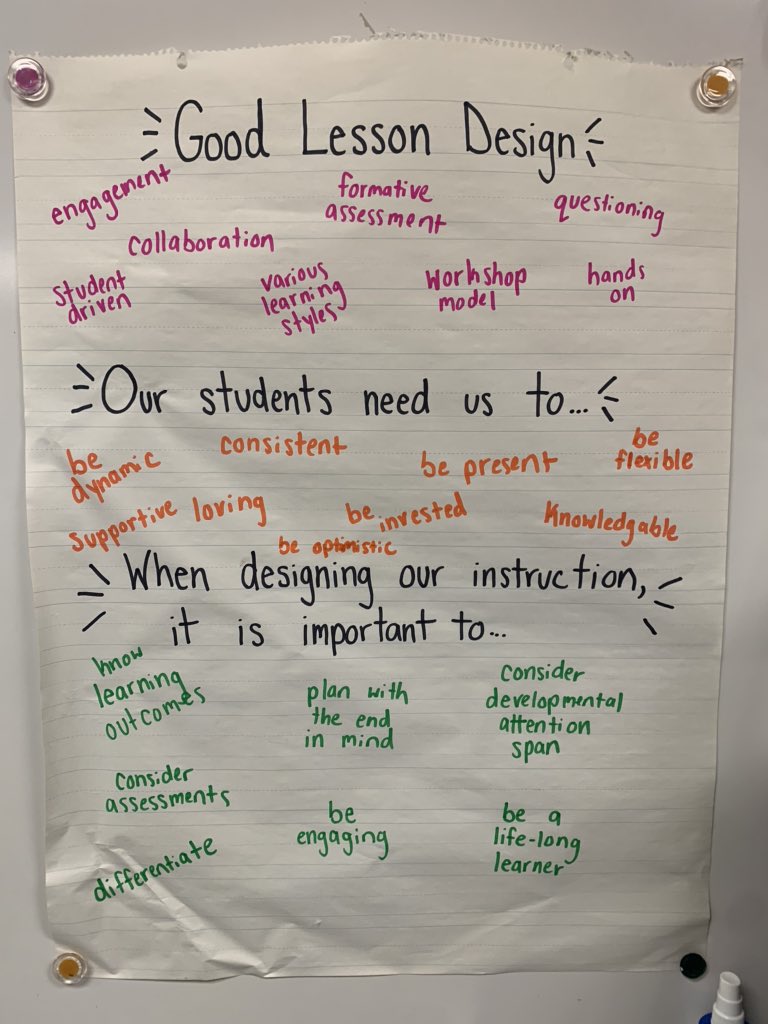 Good Lesson Design
engagement
formative
assessment
questioning
collaboration
student
driven
various
learning
styles
workshop
model
hands
on
Our students need us to...
be
dynamic
consistent
be present
be
flexible
supportive
loving
be invested
knowledgable
be optimistic
When designing our instruction,
it is important to...
know
learning
outcomes
plan with
the end
in mind
consider
developmental
attention
span
consider
assessments
be
engaging
be a
life-long
learner
differentiate